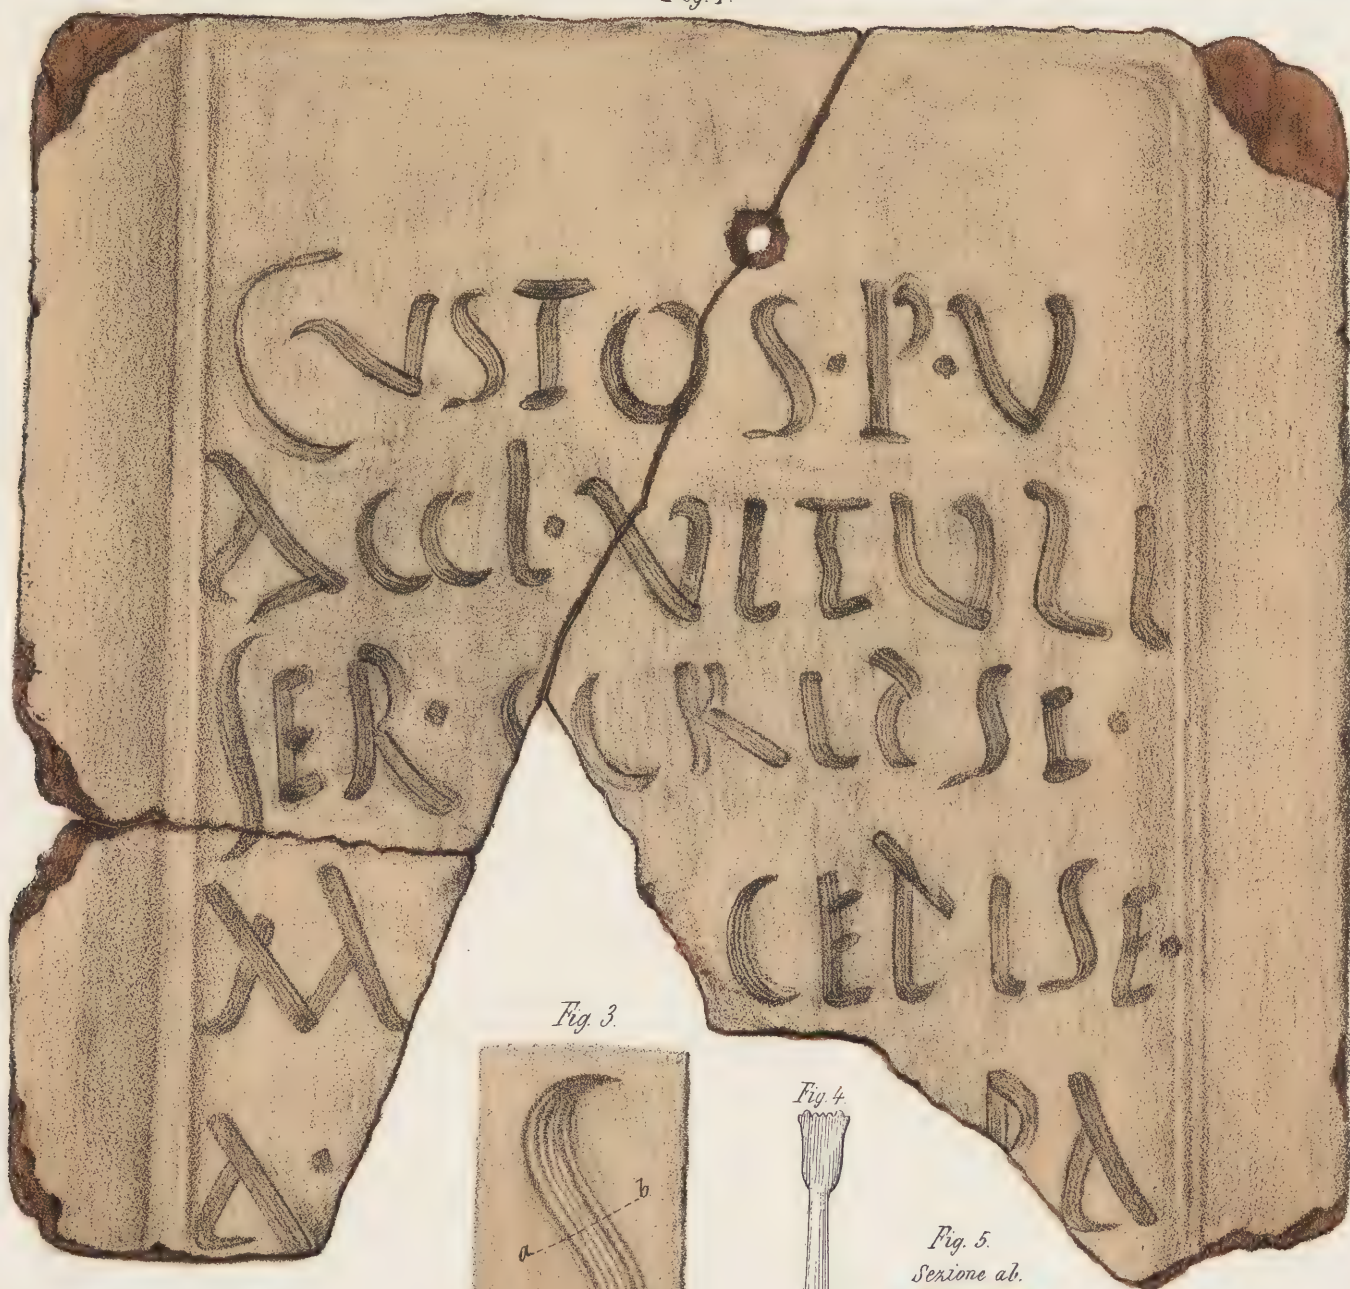 CVSTOS·P·V
ACCI·VITVLI
SER·
M
A· PA
Fig. 3.
b
a
Fig. 4.
Fig. 5.
Sezione ab.